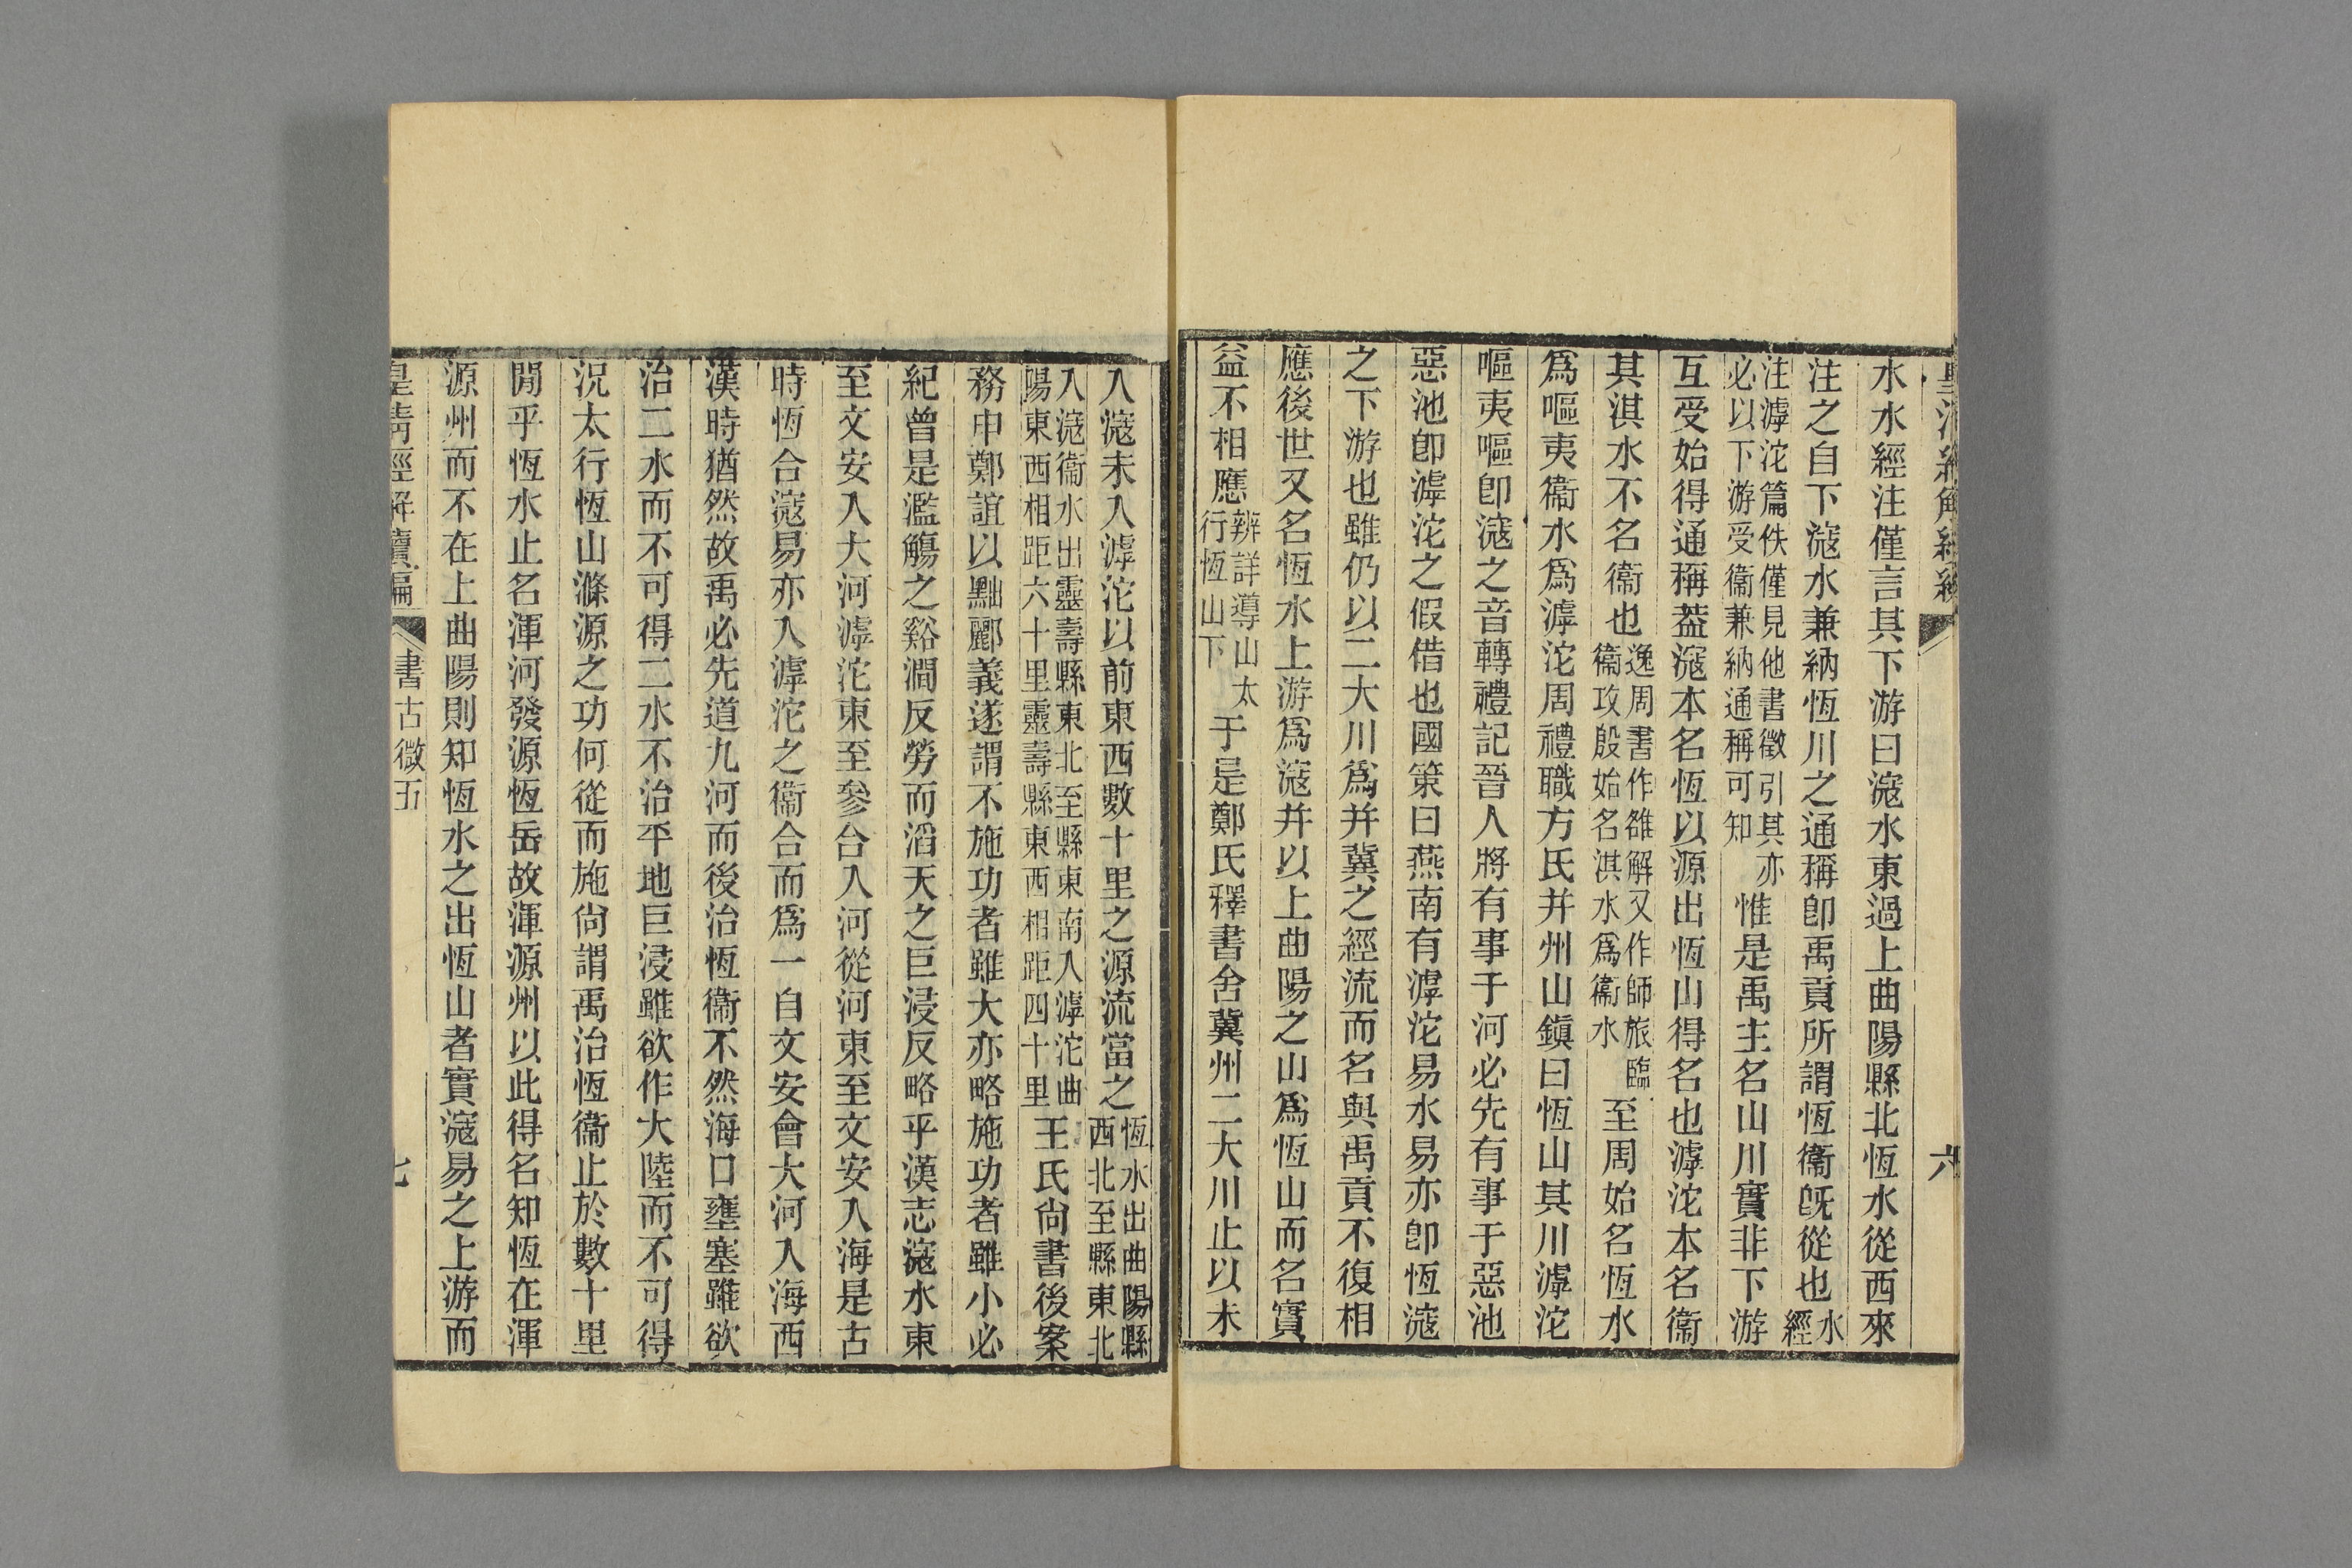 水水經注僅言其下游曰滱水東過上曲陽縣北恆水從西來
注之自下滱水兼納恆川之通稱卽禹貢所謂恆衞旣從也水經
注滹沱篇佚僅見他書徵引其亦必以下游受衞兼納通稱可知惟是禹主名山川實非下游
互受始得通稱葢滱本名恆以源出恆山得名也滹沱本名衞
其淇水不名衞也逸周書作雒解又作師旅臨衞攻殷始名淇水爲衞水至周始名恆水
爲嘔夷衞水爲滹沱周禮職方氏并州山鎭曰恆山其川滹沱
嘔夷嘔卽滱之音轉禮記晉人將有事于河必先有事于惡池
惡池卽滹沱之假借也國策曰燕南有滹沱易水易亦卽恆滱
之下游也雖仍以二大川爲并冀之經流而名與禹貢不復相
應後世又名恆水上游爲滱并以上曲陽之山爲恆山而名實
益不相應辨詳導山太行恆山下于是鄭氏釋書舍冀州二大川止以未
六
入滱未入滹沱以前東西數十里之源流當之恆水出曲陽縣西北至縣東北
入滱衞水出靈壽縣東北至縣東南入滹沱曲陽東西相距六十里靈壽縣東西相距四十里王氏尙書後案
務申鄭誼以黜酈義遂謂不施功者雖大亦略施功者雖小必
紀曾是濫觴之谿澗反勞而滔天之巨浸反略乎漢志滱水東
至文安入大河滹沱東至參合入河從河東至文安入海是古
時恆合滱易亦入滹沱之衞合而爲一自文安會大河入海西
漢時猶然故禹必先道九河而後治恆衞不然海口壅塞雖欲
治二水而不可得二水不治平地巨浸雖欲作大陸而不可得
況太行恆山滌源之功何從而施尙謂禹治恆衞止於數十里
閒乎恆水止名渾河發源恆岳故渾源州以此得名知恆在渾
源州而不在上曲陽則知恆水之出恆山者實滱易之上游而
皇清經解續編
書古微五
七